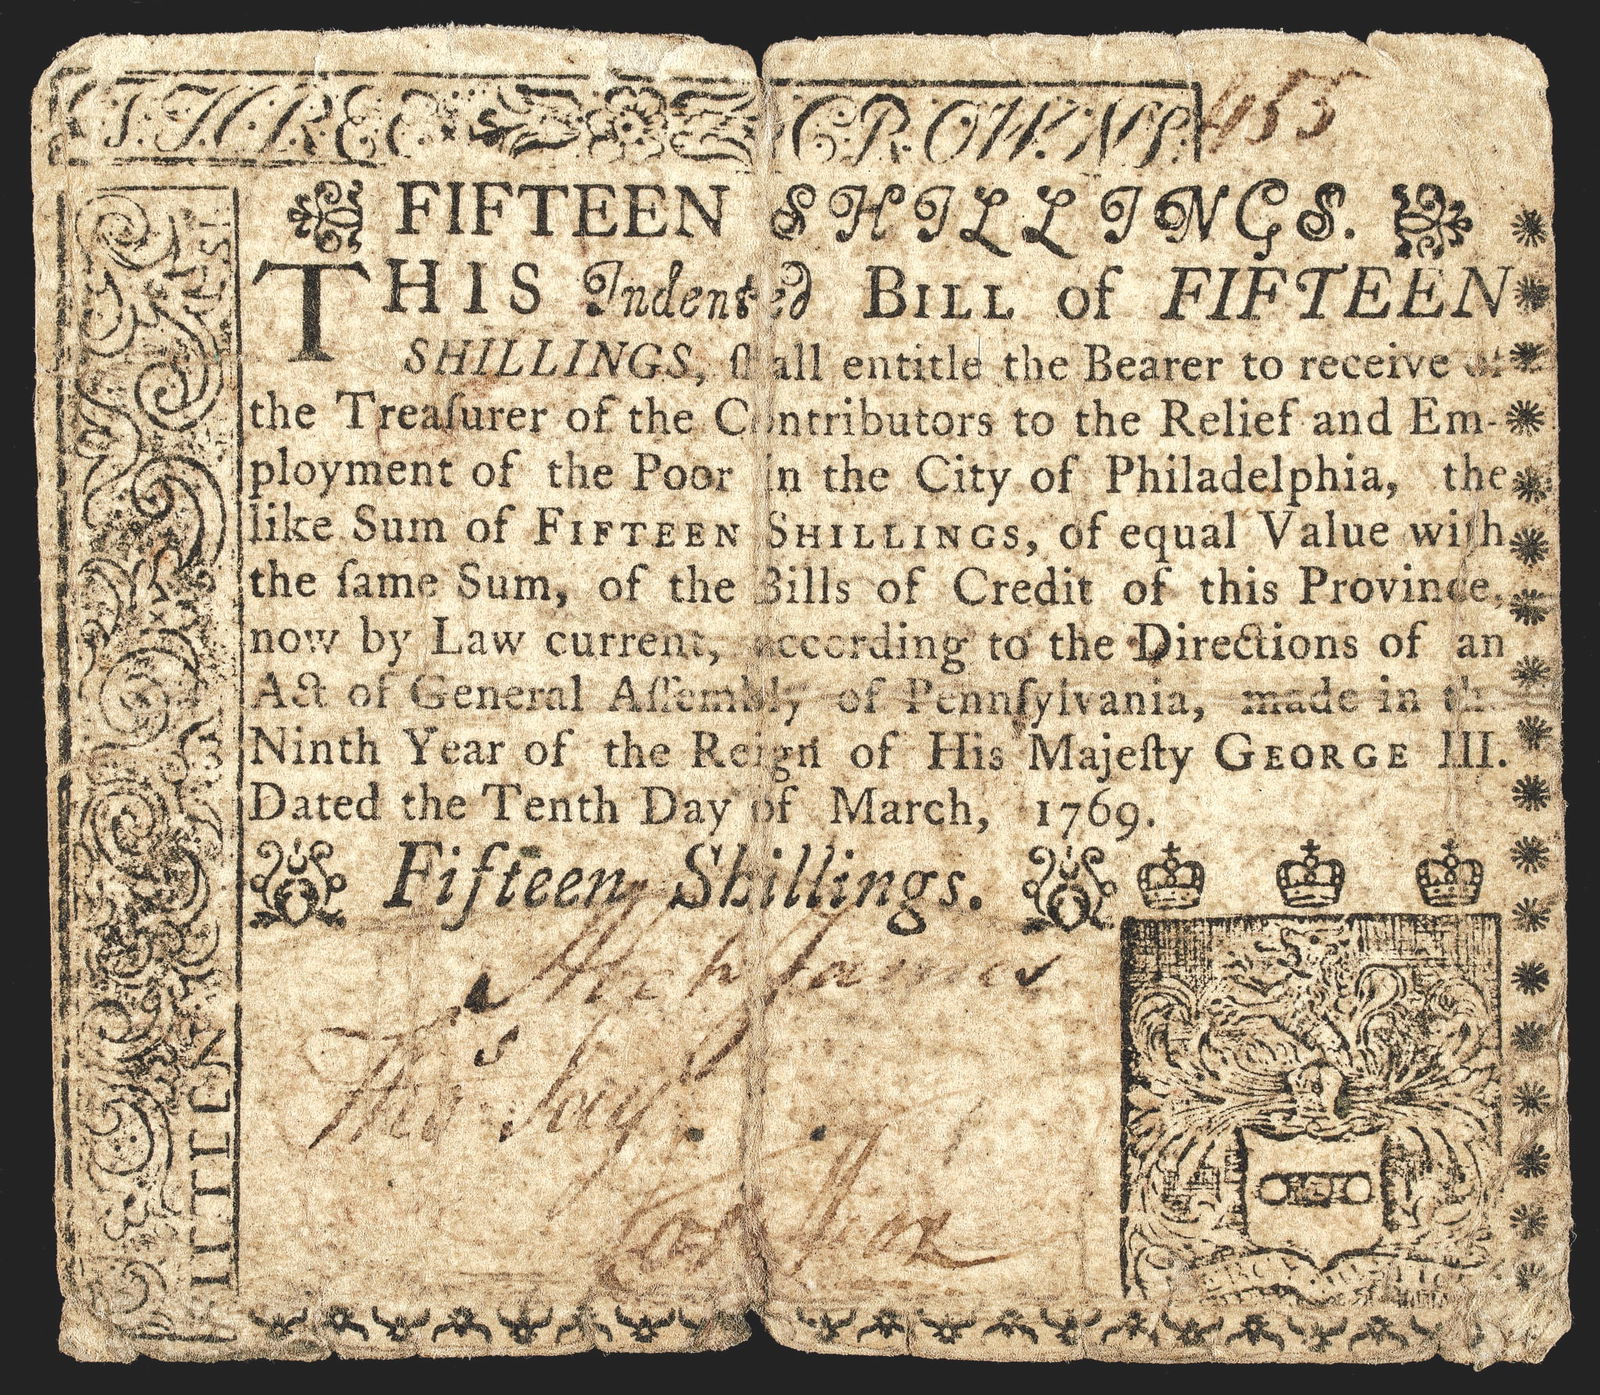 THREE CROWNS
455
FIFTEEN SHILLINGS.
THIS Indented BILL of FIFTEEN
SHILLINGS, ſhall entitle the Bearer to receive of
the Treaſurer of the Contributors to the Relief and Em-
ployment of the Poor in the City of Philadelphia, the
like Sum of FIFTEEN SHILLINGS, of equal Value with
the ſame Sum, of the Bills of Credit of this Province,
now by Law current, according to the Directions of an
Act of General Aſſembly of Pennſylvania, made in the
Ninth Year of the Reign of His Majeſty GEORGE III.
Dated the Tenth Day of March, 1769.
Fifteen Shillings.
Abel James
Thos Say